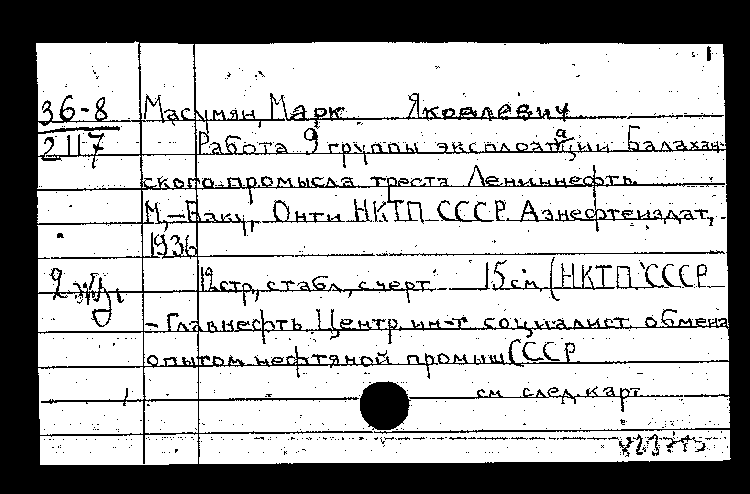 36-8 Масумян, Марк Яковлевич
2117 Работа 9 группы эксплоатации Балахан-
ского промысла треста Лениннефть.
М,-Баку, Онти НКТП СССР. Азнефтеиздат,
1936
2 12стр, с табл, с черт. 15см (НКТП СССР
-Главнефть Центр. ин-т социалист. обмена
опытом нефтяной промыш СССР
см след. карт